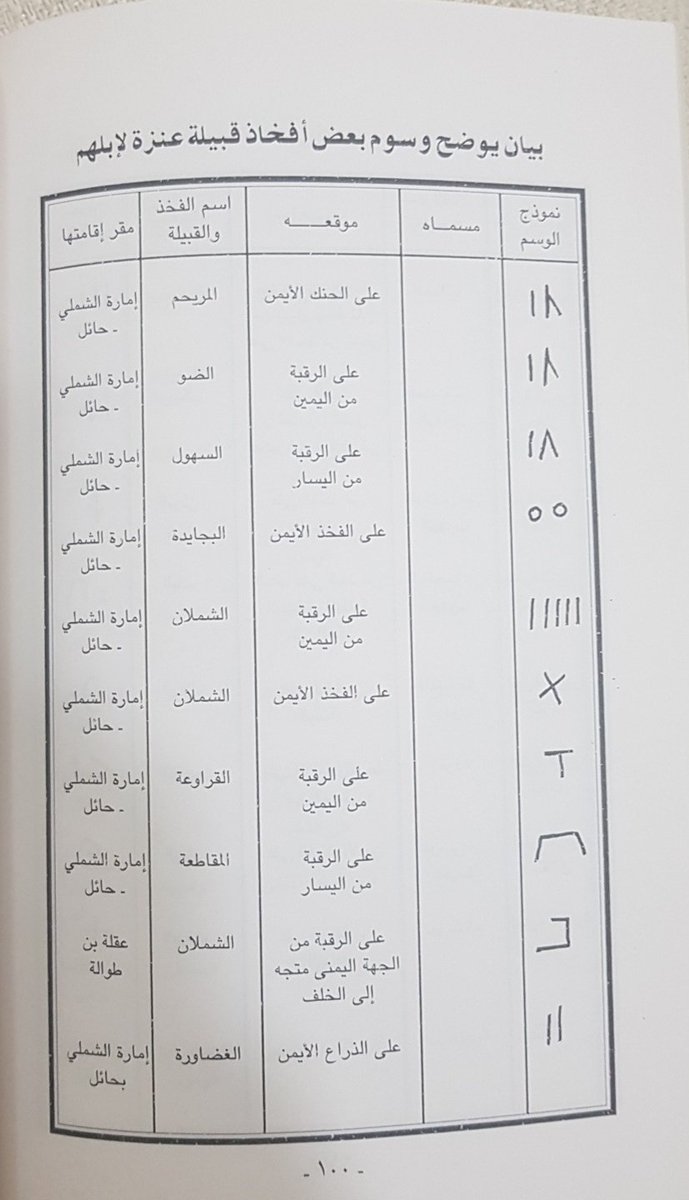 بيان يوضح وسوم بعض أفخاذ قبيلة عنزة لإبلهم
نموذج الوسم | مسمـاه | موقعـــه | اسم الفخذ والقبيلة | مقر إقامتها
على الحنك الأيمن | المريحم | إمارة الشملي - حائل
على الرقبة من اليمين | الضو | إمارة الشملي - حائل
على الرقبة من اليسار | السهول | إمارة الشملي - حائل
على الفخذ الأيمن | البجايدة | إمارة الشملي - حائل
على الرقبة من اليمين | الشملان | إمارة الشملي - حائل
على الفخذ الأيمن | الشملان | إمارة الشملي - حائل
على الرقبة من اليمين | القراوعة | إمارة الشملي - حائل
على الرقبة من اليسار | المقاطعة | إمارة الشملي - حائل
على الرقبة من الجهة اليمنى متجه إلى الخلف | الشملان | عقلة بن طوالة
على الذراع الأيمن | الغضاورة | إمارة الشملي بحائل
- ١٠٠ -